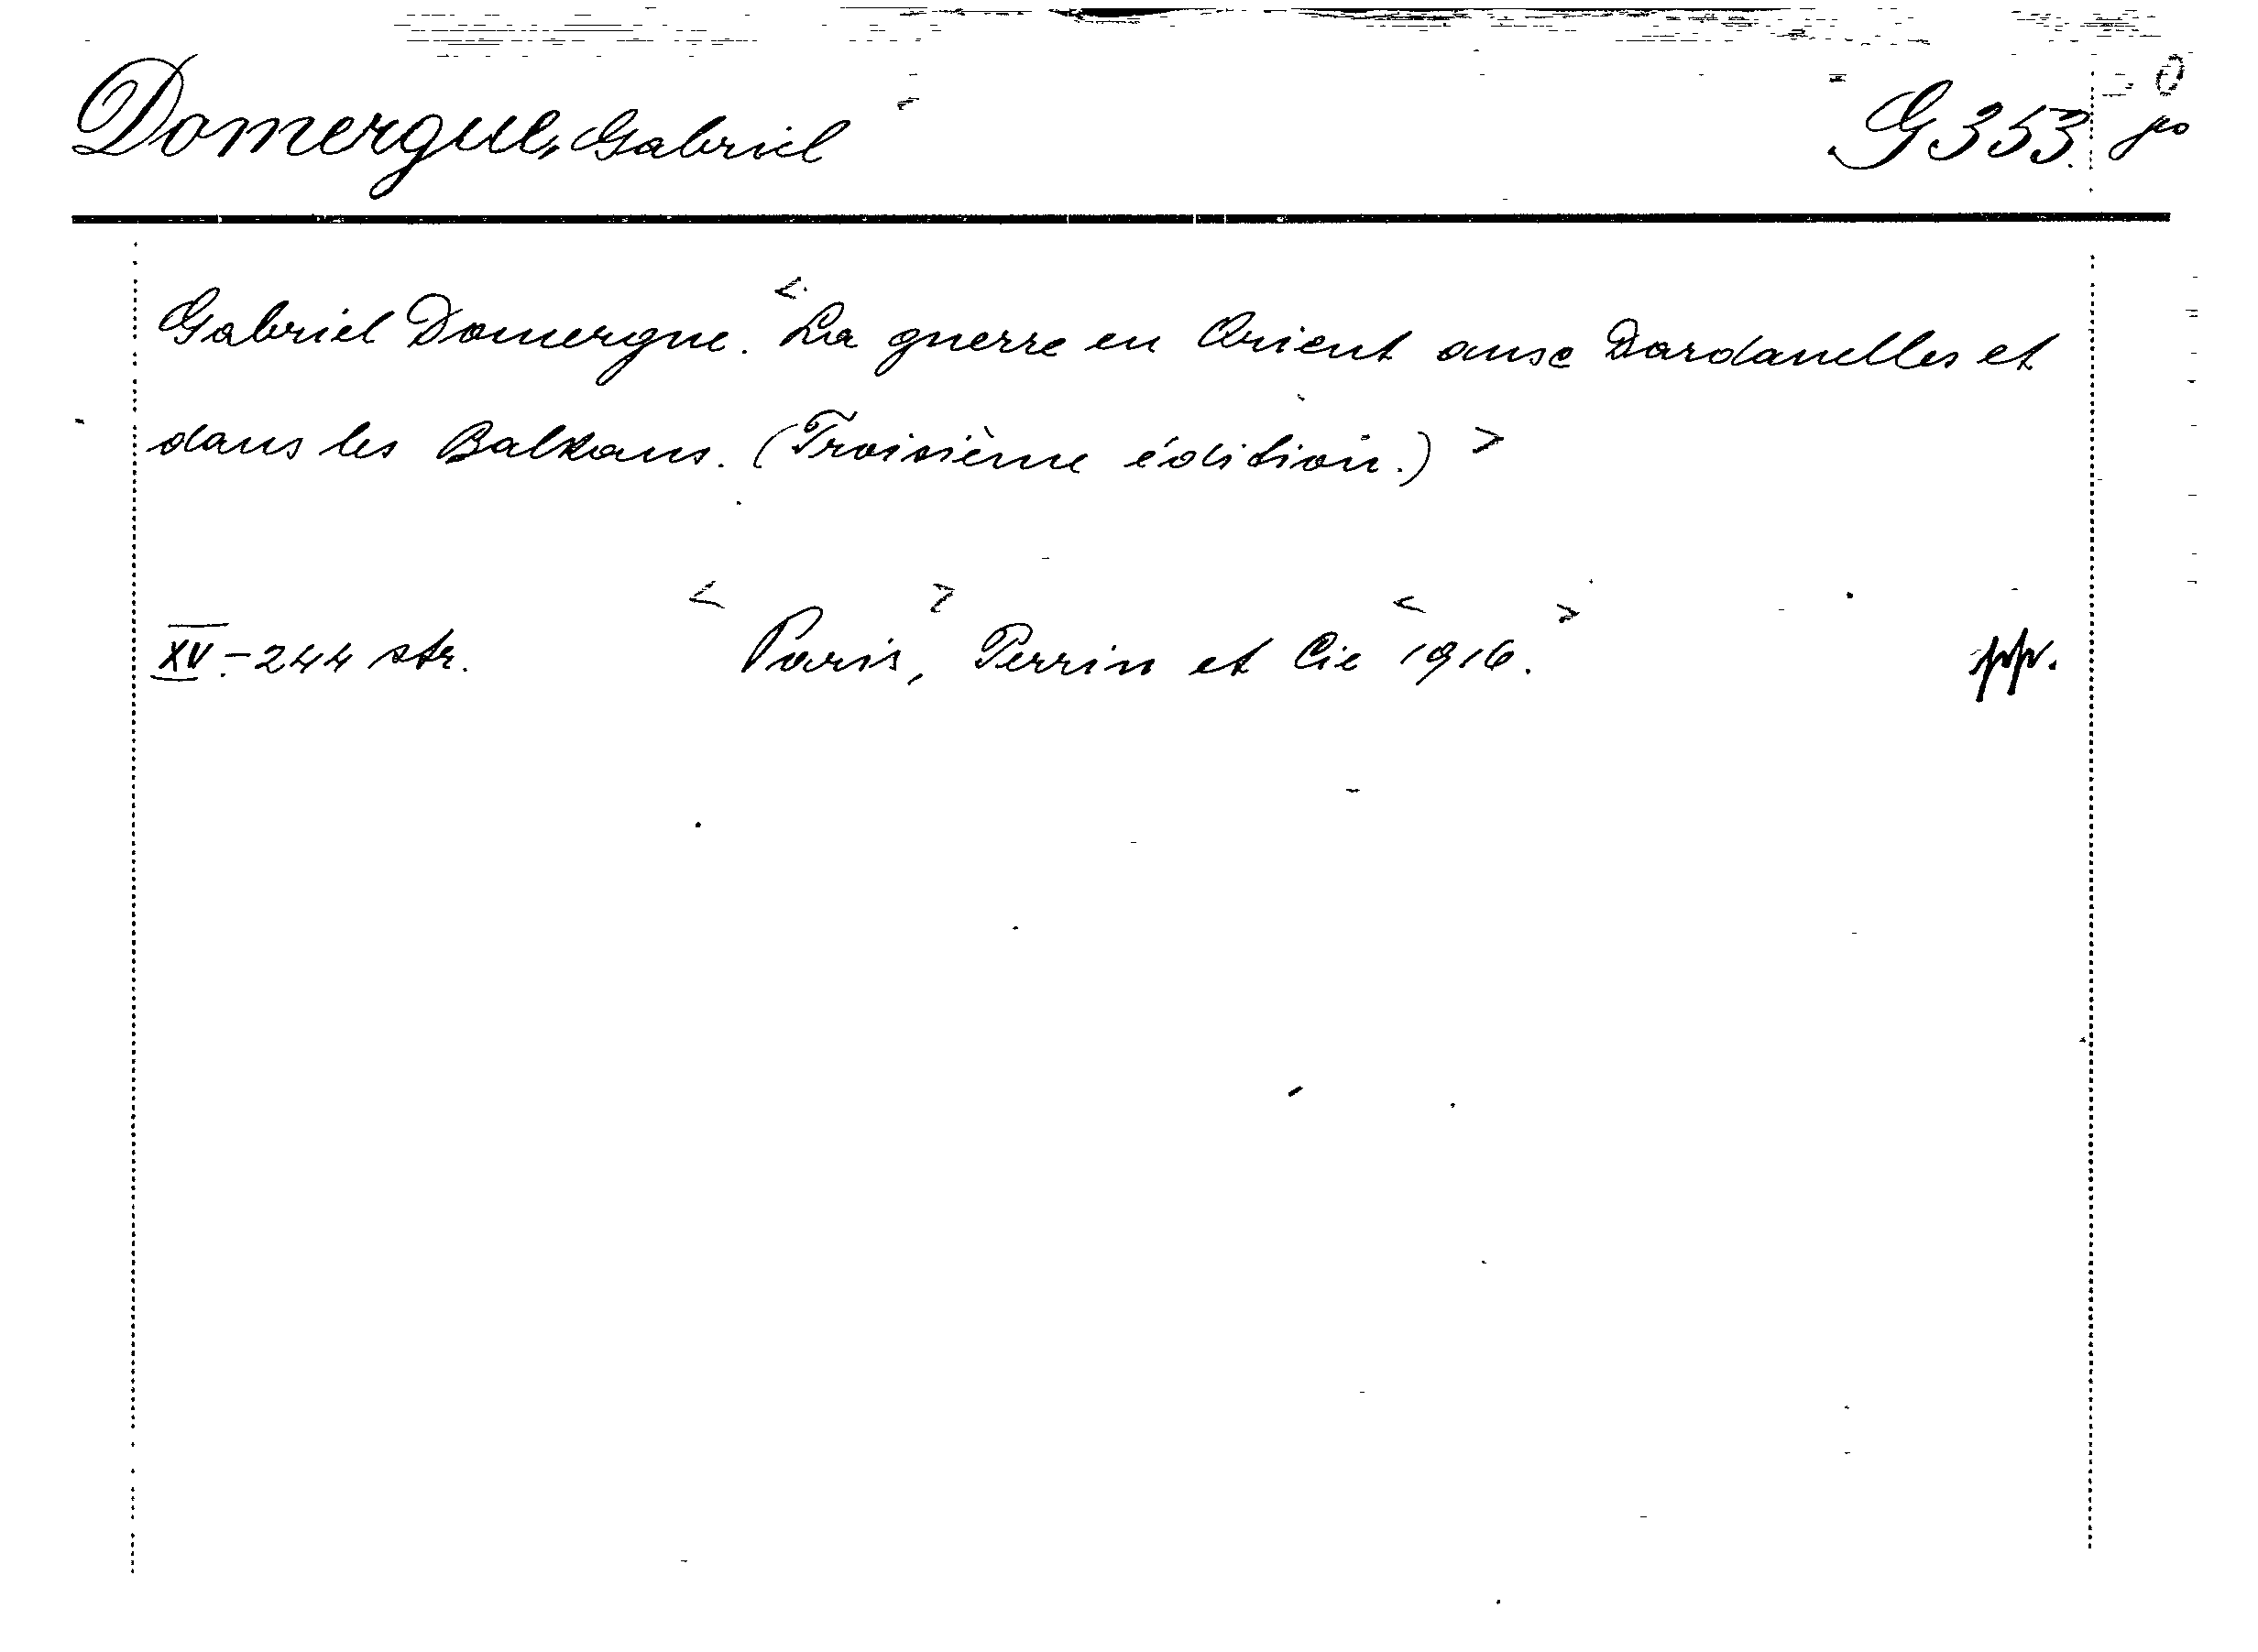 Domergue, Gabriel G 353.
Gabriel Domergue. <La guerre en Orient aux Dardanelles et
dans les Balkans. (Troisième édition.)>
XV.-244 str. <Paris>, Perrin et Cie <1916.> pp.